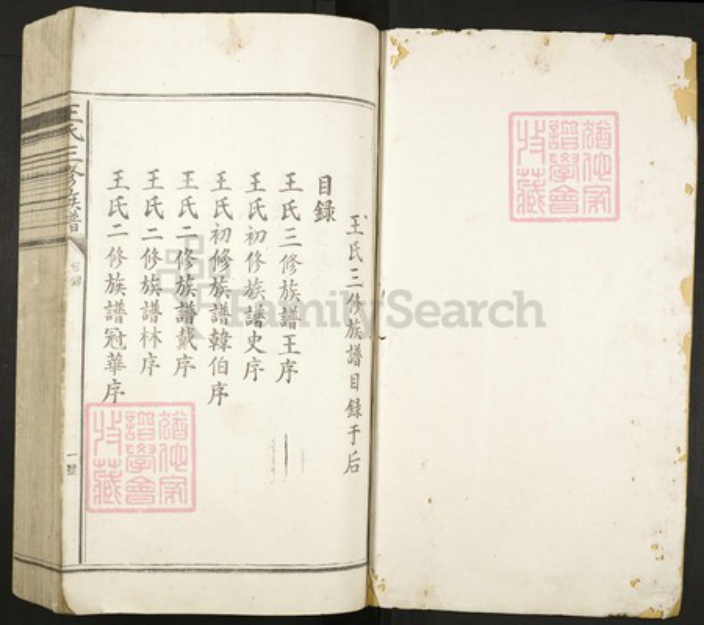 王氏三修族譜目録于后
目録
王氏三修族譜王序
王氏初修族譜史序
王氏初修族譜韓伯序
王氏二修族譜戴序
王氏二修族譜林序
王氏二修族譜冠華序
王氏三修族譜
一號
FamilySearch